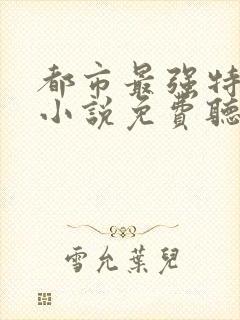 都市最强特
小說免費聽
雪允葉兒